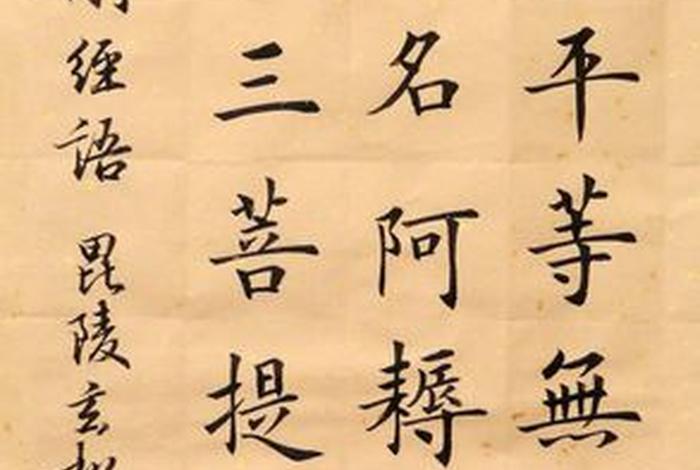 平等無
名阿耨
三菩提
經語 毘陵玄